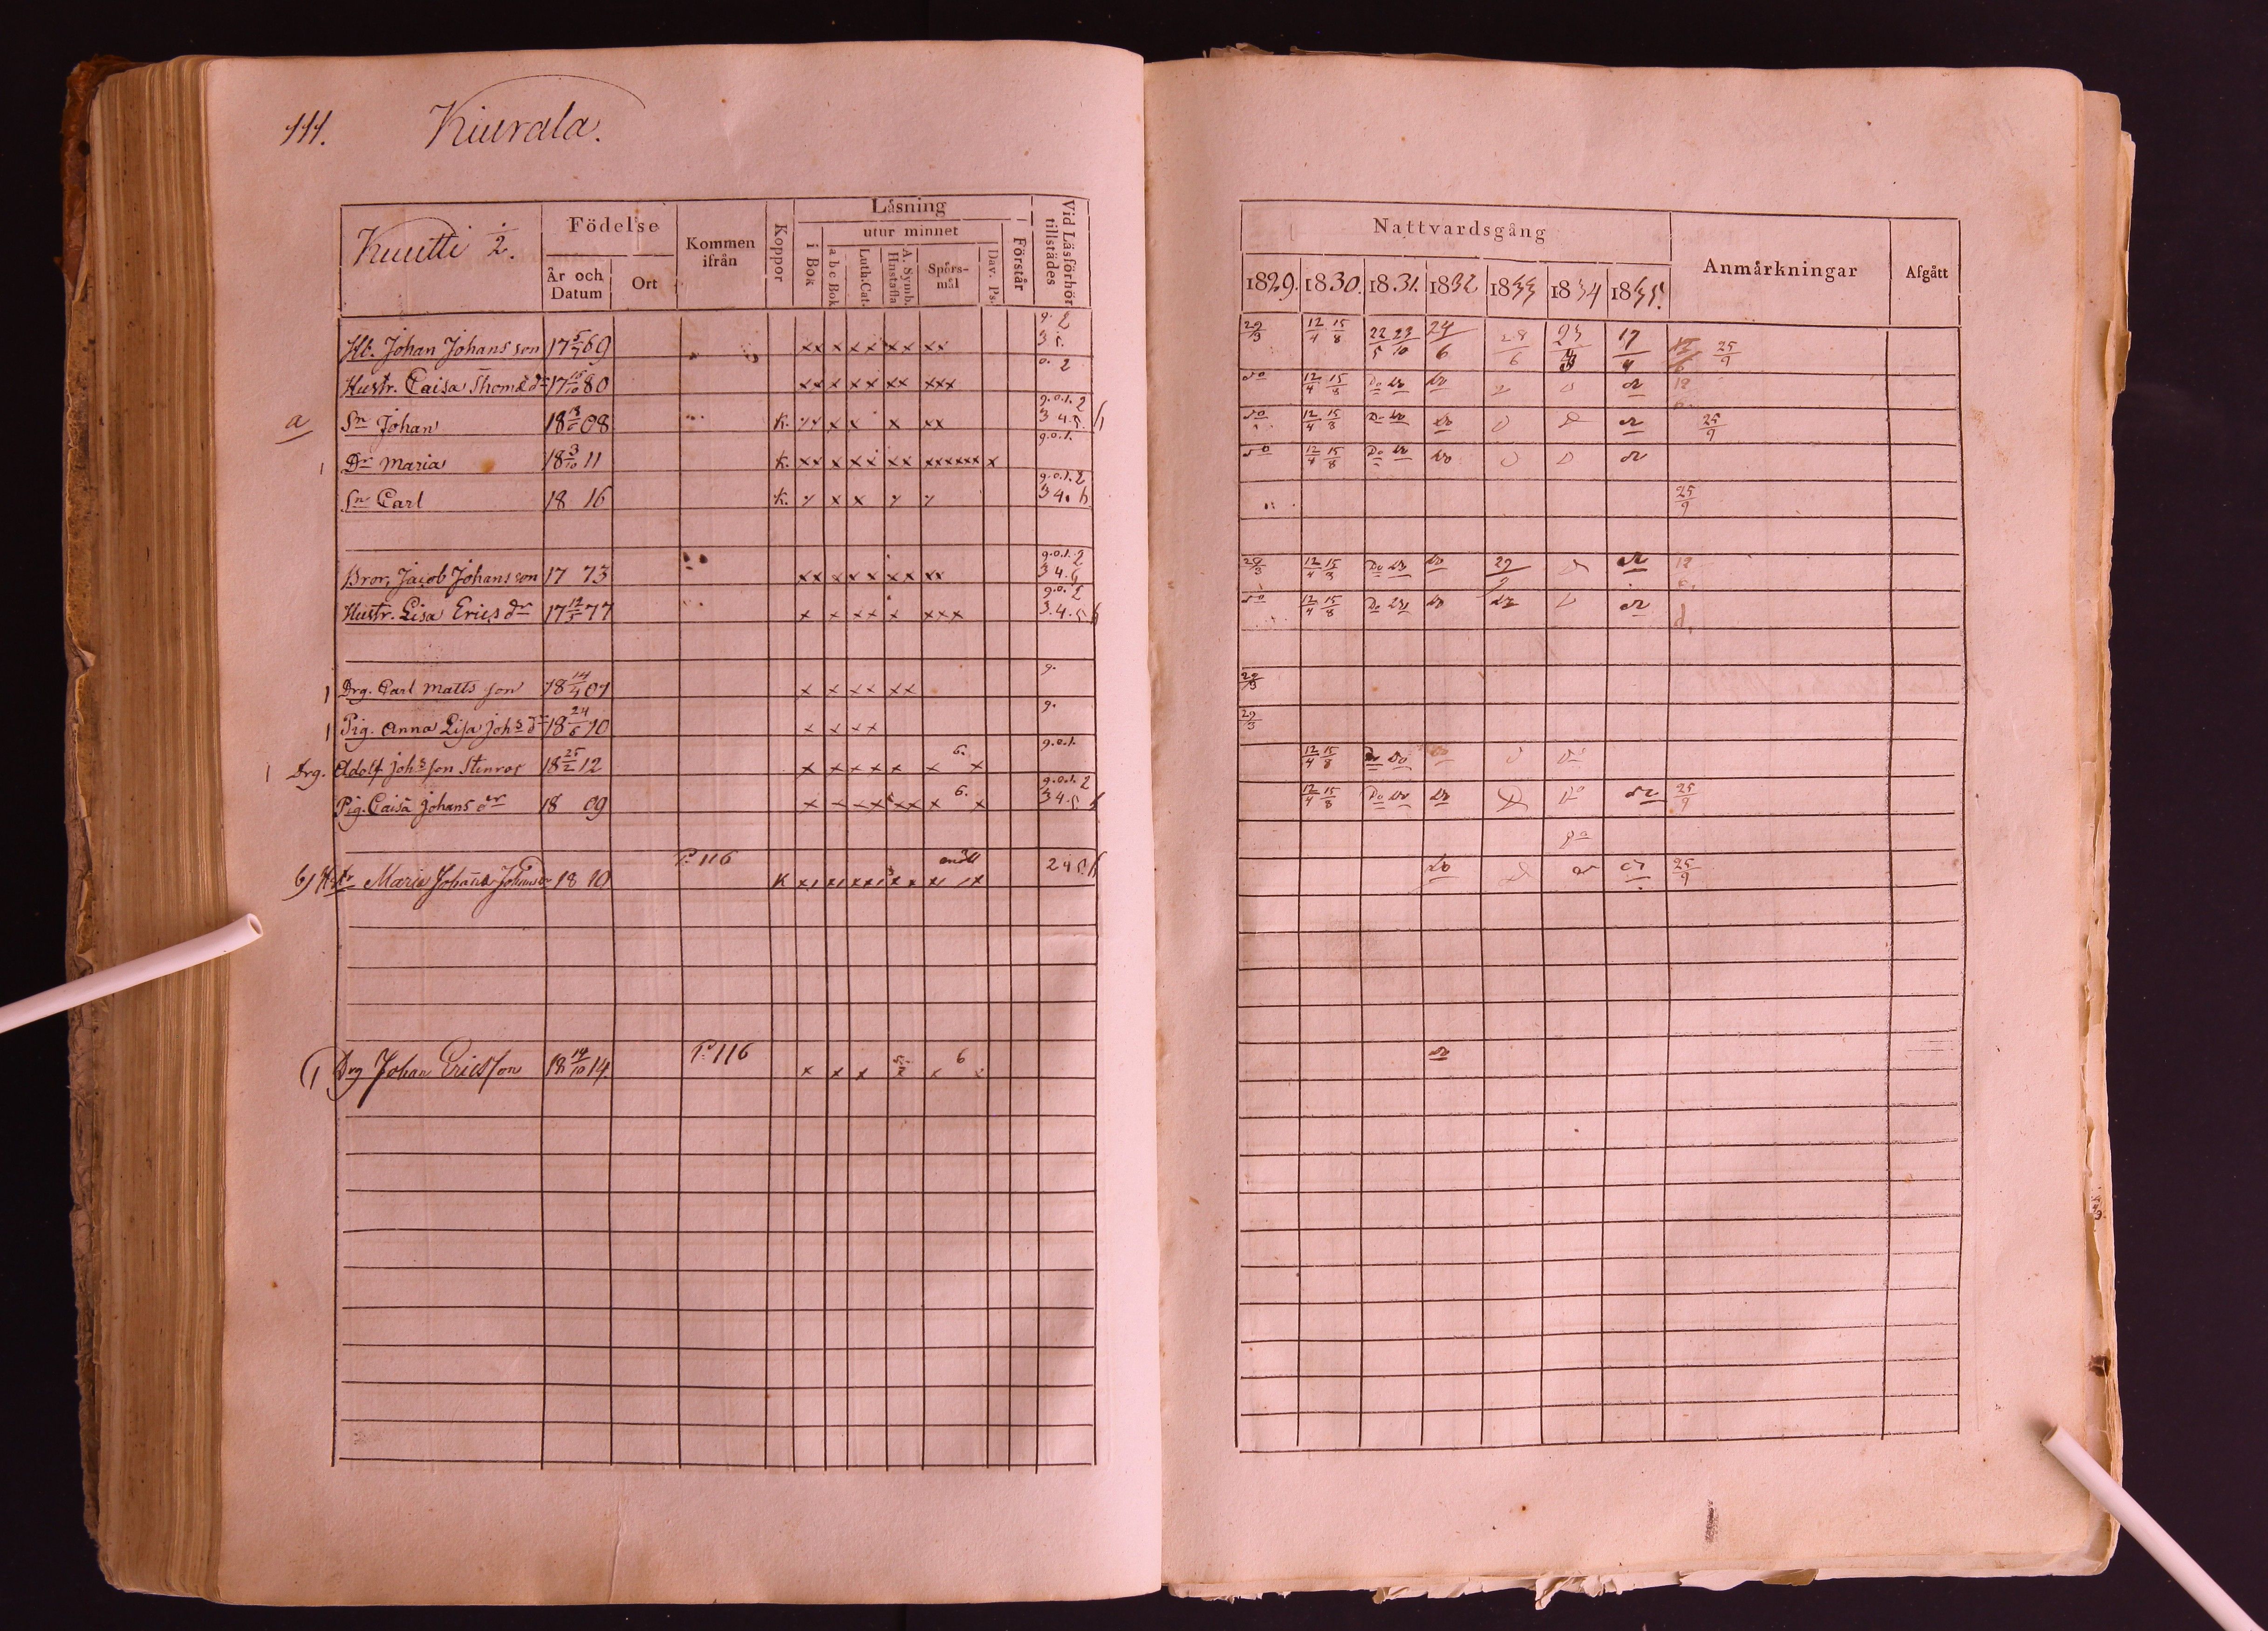 111. Kiurala.
Kuutti 1/2.
Födelse
År och Datum
Ort
Kommen ifrån
Koppor
Läsning
utur minnet
i Bok
a b c Bok
Luth. Cat.
A. Symb. Hustafla
Spörs-mål
Dav. Ps.
Förstår
Vid Läsförhör tillstädes
Hb. Johan Johans son 17 5/7 69 xx x xx xx xx 9. 2 3 5.
Hustr. Caisa Thomæ dr 17 15/10 80 xx x xx xx xxx 0. 2
a Sn Johan 18 08 K. xx x x x xx 9.0.1. 2 3 4.5. h
1 Dr Maria 18 3/10 11 K. xx x xx xx xxxxxx x 9.0.1.
Sn Carl 18 16 K. 9.0.1. 2 3 4. h
Bror, Jacob Johans son 17 73 xx x xx xx xx 9.0.1. 2 3 4.
Hustr. Lisa Erics dr 17 12/5 77 x x xx x xxx 9.0. 2 3.4.5 h
1 Drg. Carl Matts son 18 14/4 07 x x xx xx 9.
1 Pig. Anna Lisa Johs dr 18 24/6 10 x x xx 9.
1 Drg. Adolf Johs son Stenros 18 25/2 12 x x xx x x 6. x 9.0.1.
Pig. Caisa Johans dr 18 09 x x xx xx x 6. x 9.0.1. 2 3 4.5 h
b) Hstr Maria Johans 18 10 P. 116 K 2 4 5 h
1 Drg Johan Ericsson 18 14/10 14. P. 116 x x x x x 6
Nattvardsgång
Anmärkningar
Afgått
1829. 1830. 1831. 1832 1833 1834 1835.
29/3 12/4 15/8 22/5 23/10 24/6 28/6 17/4 25/9
do 12/4 15/8 Do do do
do 12/4 15/8 Do do do 25/9
do 12/4 15/8 Do do do
25/9
29/3 12/4 15/8 Do do do
do 12/4 15/8 Do do do
29/3
29/3
12/4 15/8 do do
12/4 15/8 Do do do 25/9
do
do 25/9
do